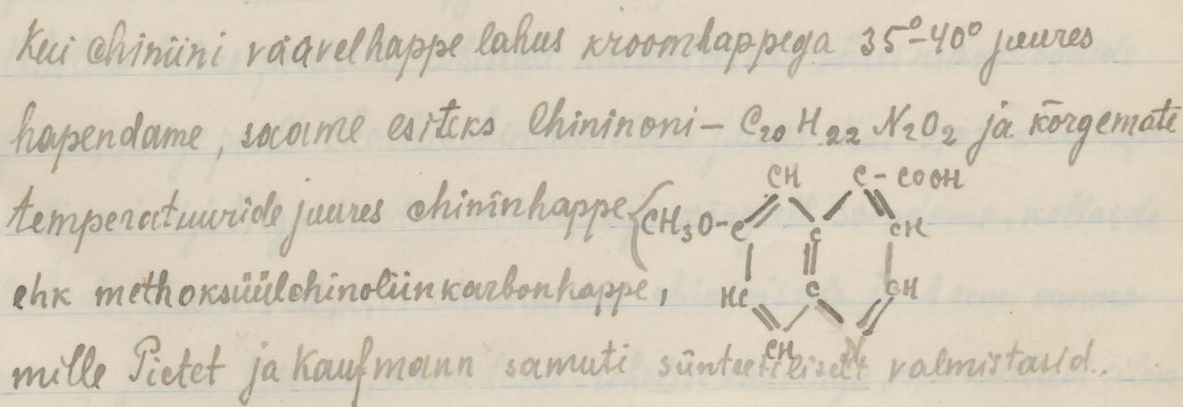 Kui chiniini väävelhappe lahus kroomhappega 35°-40° juures
hapendame, saame esiteks Chininoni - C20 H22 N2O2 ja kõrgemate
CH C - COOH
temperatuuride juures chininhappe { CH3O-C C CH
ehk methoksüülchinoliinkarbonhappe, HC C CH
CH N
mille Pictet ja Kaufmann samuti sünteetiliselt valmistasid.